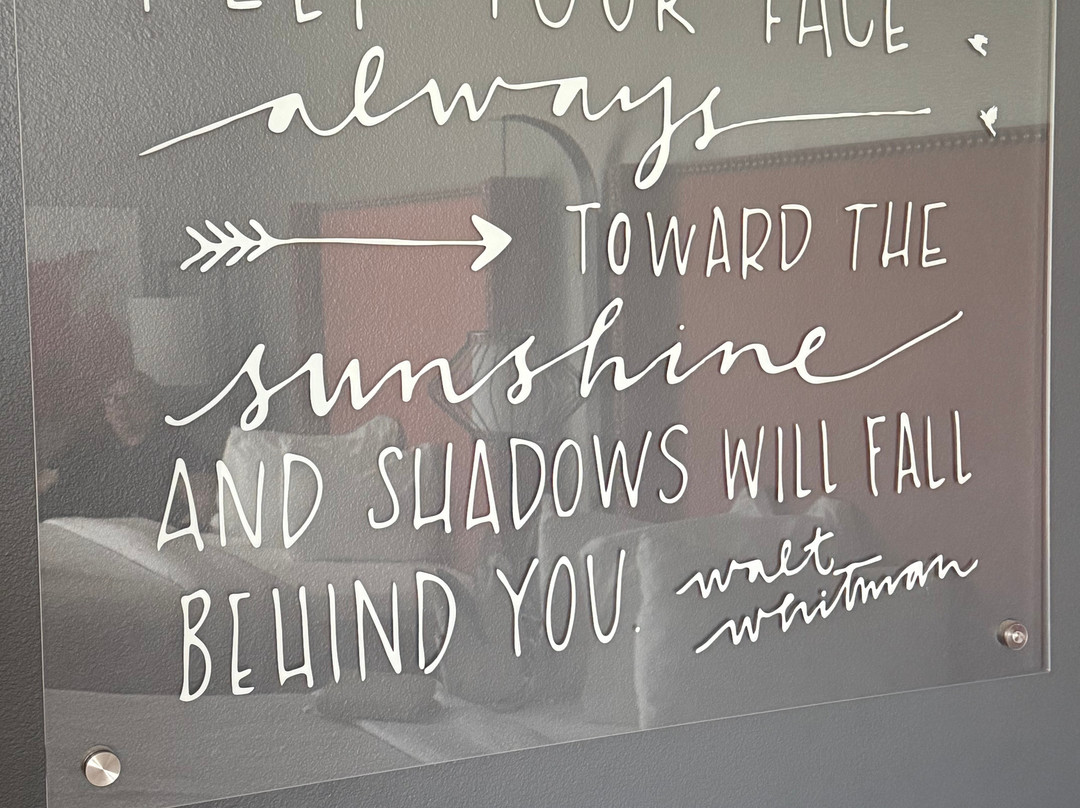 KEEP YOUR FACE
always
TOWARD THE
sunshine
AND SHADOWS WILL FALL
BEHIND YOU.
walt
whitman